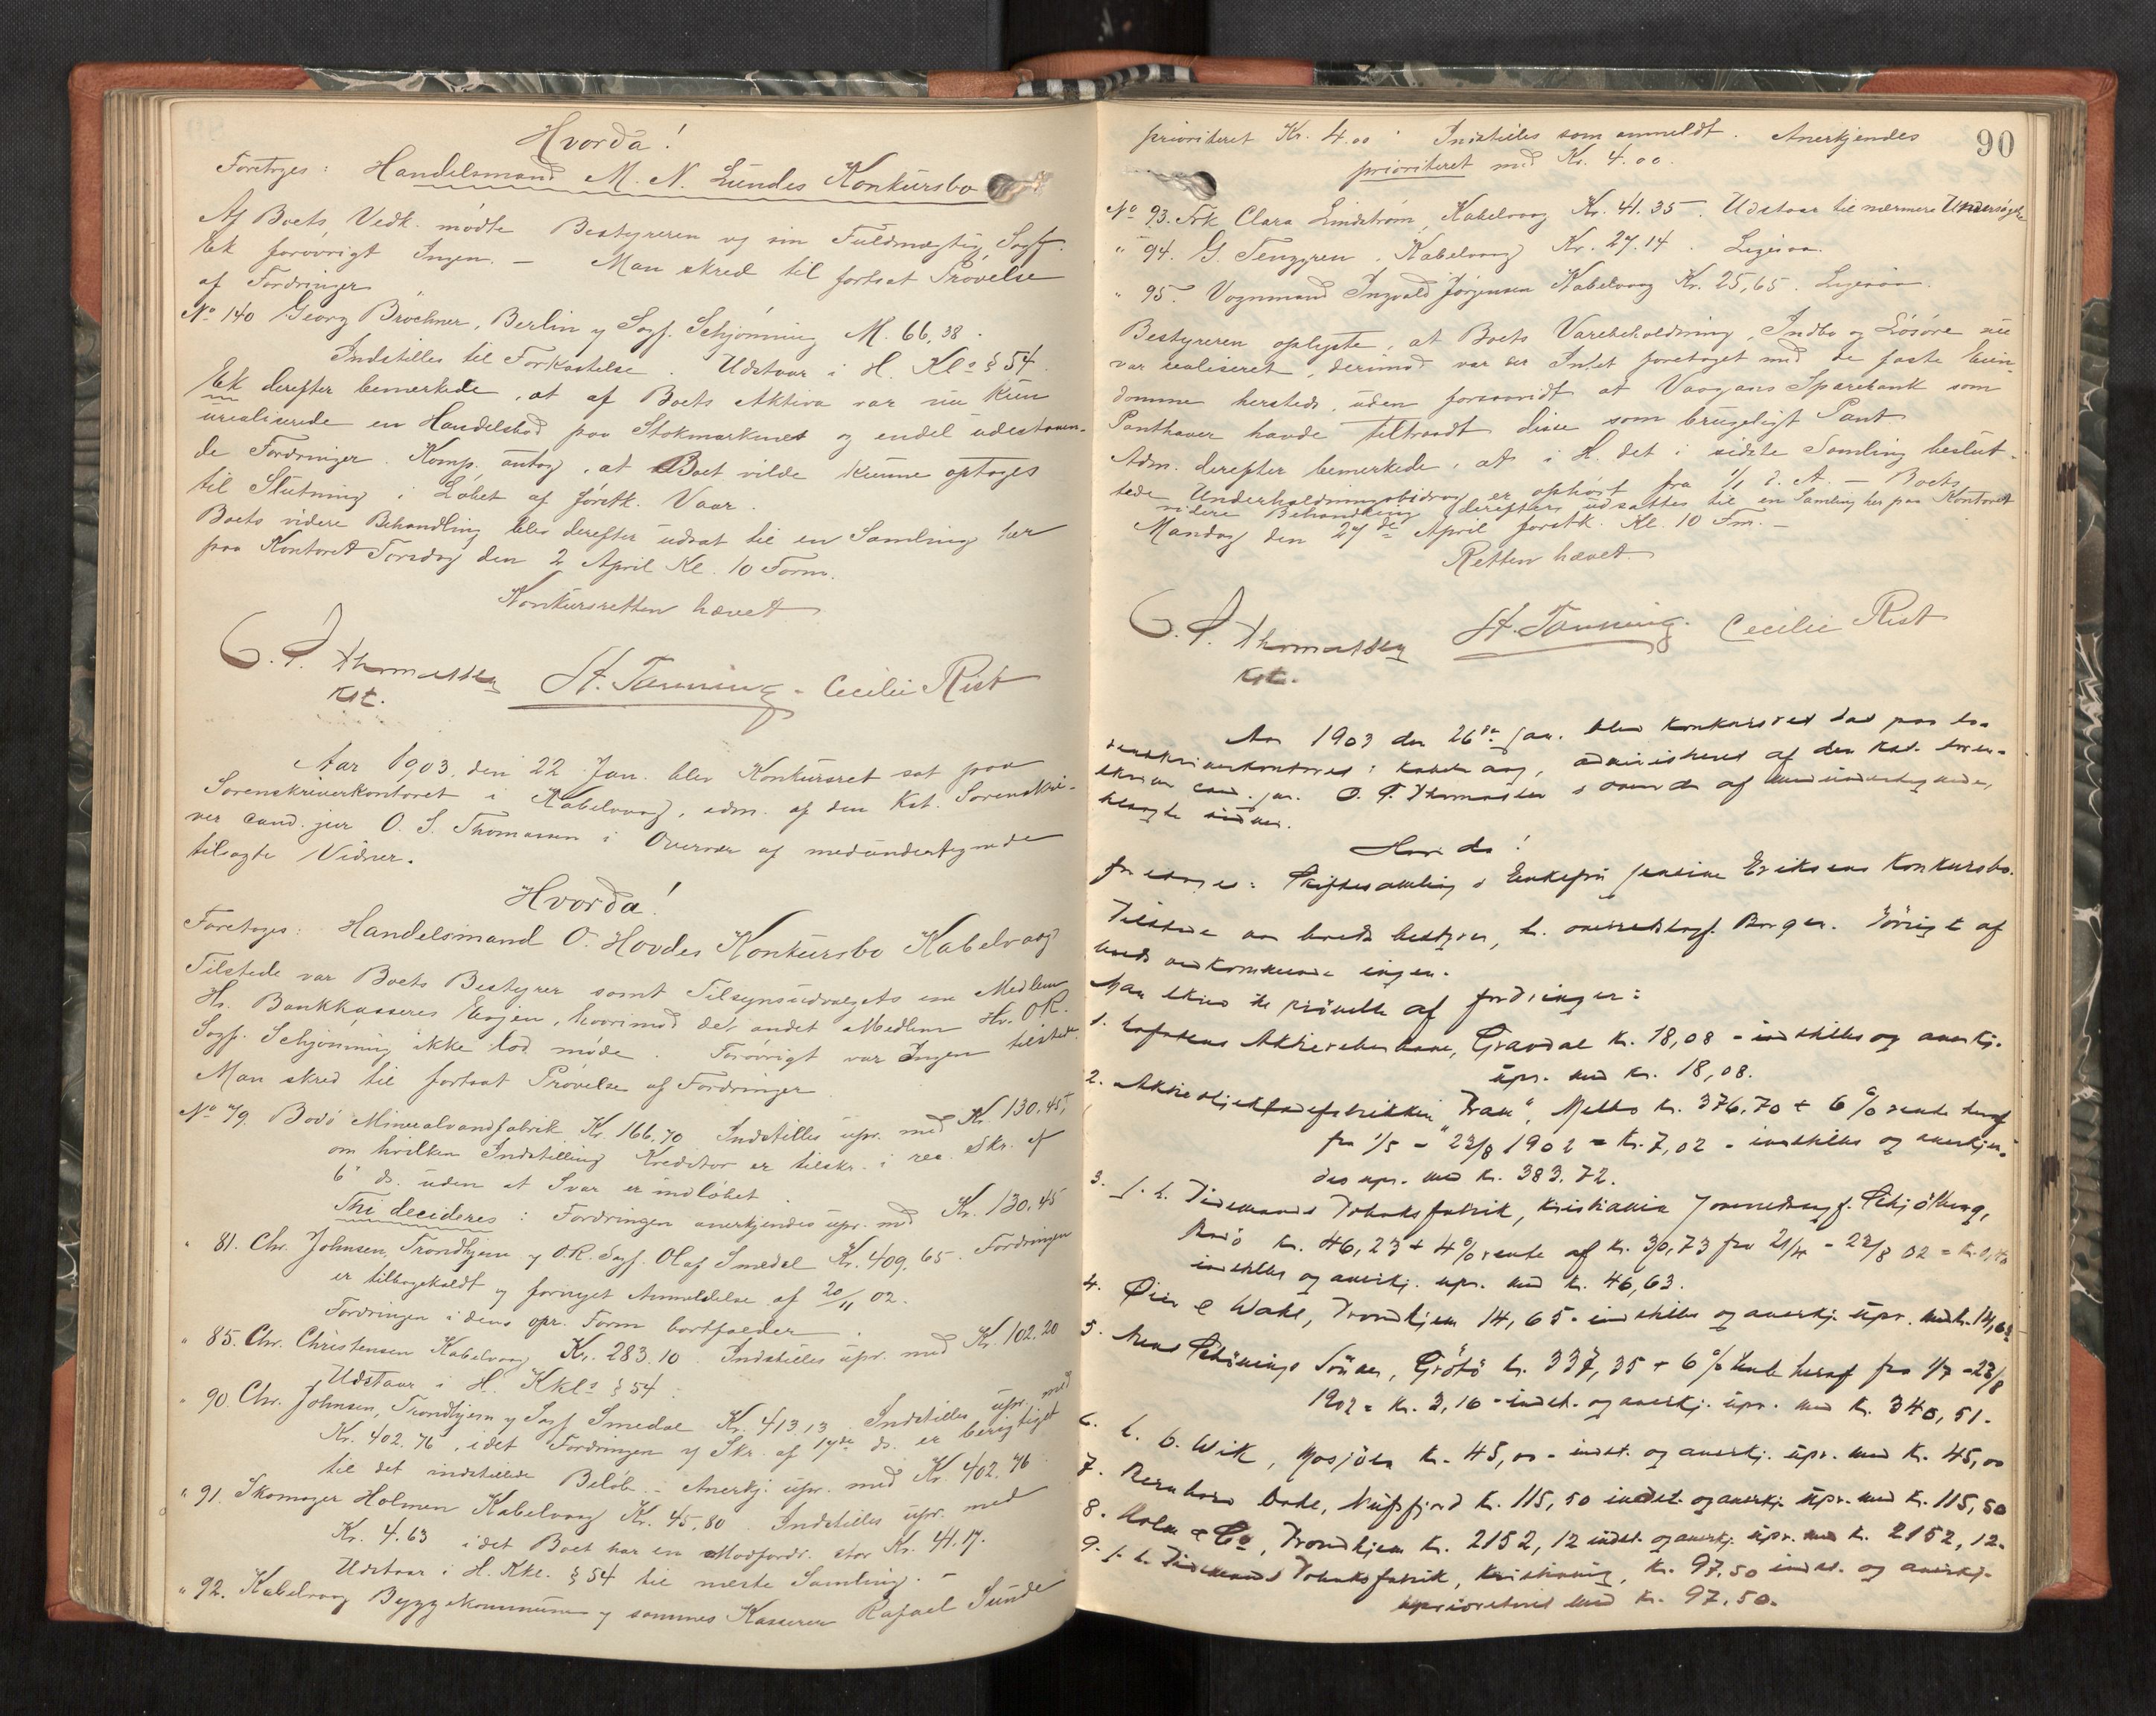 Hvorda!
Foretoges: Handelsmand M. N. Lundes Konkursbo
Af Boets Vedk. mødte Bestyreren og sin Fuldmægtig, Sagf.
Ek forøvrigt Ingen. — Man skred til fortsat Prøvelse
af Fordringer
No 140 Georg Bröchner, Berlin y Sagf. Schjönning M. 66,38.
Indstilles til Forkastelse. Udstaar i H. Kl. § 54.
Ek derefter bemerkede, at af Boets Aktiva var nu kun
urealiserede en Handelsbod paa Stokmarknes og endel udestaaen-
de Fordringer. Komp. antog, at Boet vilde kunne optages
til Slutning i Løbet af førstk. Vaar.
Boets videre Behandling blev derefter udsat til en Samling her
paa Kontoret Torsdag den 2 April Kl. 10 Form.
Konkursretten hævet
O. S. Thomassen St. Tanning. Cecilie Rist
Kst.
Aar 1903, den 22 Jan. blev Konkursret sat paa
Sorenskriverkontoret i Kabelvaag, adm. af den Kst. Sorenskri-
ver cand. jur O. S. Thomassen i Overvær af medundertegnede
tilsagte Vidner.
Hvorda!
Foretoges: Handelsmand O. Hovdes Konkursbo Kabelvaag
Tilstede var Boets Bestyrer samt Tilsynsudvalgets ene Medlem
Hr. Bankkasserer Evjen, hvorimod det andet Medlem Hr. OR.
Sagf. Schjønning ikke lod møde. Forøvrigt var Ingen tilstede.
Man skred til fortsat Prøvelse af Fordringer
No 79. Bodø Mineralvandfabrik Kr. 166.70 Indstilles upr. med Kr 130,45,
om hvilken Indstilling Kreditor er tilskr. i rec. Skr. af
6 ds. uden at Svar er indløbet.
Thi decideres: Fordringen anerkjendes upr. med Kr. 130,45
" 81. Chr. Johnsen, Trondhjem y O.R. Sagf. Olaf Smedal Kr. 409.65. Fordringen
er tilbagekaldt y fornyet Anmeldelse af 20/11 02.
Fordringen i dens opr. Form bortfalder.
" 85. Chr. Christensen Kabelvaag Kr. 283.10. Indstilles upr. med Kr. 102.20
Udstaar i H. Kkl. § 54.
" 90. Chr. Johnsen, Trondhjem y Sagf Smedal Kr. 413.13 Indstilles upr. med
Kr. 402.76, idet Fordringen y Skr. af 17de ds. er berigtiget
til det indstillede Beløb. – Anerkj. upr. med Kr. 402.76
" 91. Skomager Holmen Kabelvaag Kr. 45,80. Indstilles upr. med
Kr. 4.63 idet Boet har en Modfordr. stor Kr. 41.17.
Udstaar i H. Kkl. § 54 til næste Samling. –
" 92. Kabelvaag Byggekommune y sammes Kasserer Rafael Sunde
90
prioriteret Kr. 4.00 Indstilles som anmeldt. Anerkjendes
prioriteret med Kr. 4.00.
No 93. Frk Clara Lindstrøm, Kabelvaag Kr. 41.35. Udstaar til nærmere Undersøgelse
" 94. G. Tenggren, Kabelvaag Kr. 27.14. Ligesaa.
" 95. Vognmand Ingvald Jørgensen Kabelvaag Kr. 25,65. Ligesaa.
Bestyreren oplyste, at Boets Varebeholdning, Indbo og Løsøre nu
var realiseret, derimod var der Intet foretaget med de faste Eien-
domme hersteds, uden forsaavidt at Vaagans Sparebank som
Panthaver havde tiltraadt disse som brugeligt Pant
Adm. derefter bemerkede, at i H. det i sidste Samling beslut-
tede Underholdningsbidrag er ophørt fra 1/1 d. A. — Boets
videre Behandling derefter udsattes til en Samling her paa Kontoret
Mandag den 27de April førstk. Kl. 10 Fm. –
Retten hævet.
O. S. Thomassen St. Tanning. Cecilie Rist
Kst.
Aar 1903 den 26de jan. blev konkursret sat paa so-
renskriverkontoret i Kabelvaag, administreret af den kst. soren-
skriver cand. jur. O. S. Thomassen i overvær af medundertegnede,
tilsagte vidner.
Hvorda!
foretoges: Skiftesamling i Enkefru Jensine Eriksens Konkursbo.
Tilstede var boets bestyrer, h. overretssagf. Borger. Iøvrigt af
boets vedkommende ingen.
Man skred til prøvelse af fordringer:
1. Lofotens Aktierebebane, Gravdal kr. 18,08 – indstilles og anerkj.
upr. med kr. 18,08.
2. Aktie "Fram", Melbo kr. 376,70 + 6 % rente heraf
fra 1/5 – 23/8 1902 = kr. 7,02 – indstilles og anerkjen-
des upr. med kr. 383.72.
3. J. L. Tidemands Tobaksfabrik, Kristiania y overretssagf. Schjølberg,
Bodø kr. 46,23 + 4 % rente af kr. 30,73 fra 21/4 – 23/8 02 = kr. 0,40
indstilles og anerkj. upr. med kr. 46,63.
4. Øien & Wahl, Trondhjem 14,65 – indstilles og anerkj. upr. med kr. 14,65
5. Jens Schönings Sønner, Grøtø kr. 337,35 + 6 % rente heraf fra 1/7 – 23/8
1902 = kr. 3,16 – indst. og anerkj. upr. med kr. 340,51.
6. L. B. Wik, Mosjøen kr. 45,00 – indst. og anerkj. upr. med kr. 45,00
7. Bernhard Dahl, Nusfjord kr. 115,50 indst. og anerkj. upr. med kr. 115,50
8. Holm & Co, Trondhjem kr. 2152,12 indst. og anerkj. upr. med kr. 2152,12.
9. J. L. Tidemands Tobaksfabrik, Kristiania, kr. 97.50 indst. og anerkj.
uprioriteret med kr. 97.50.